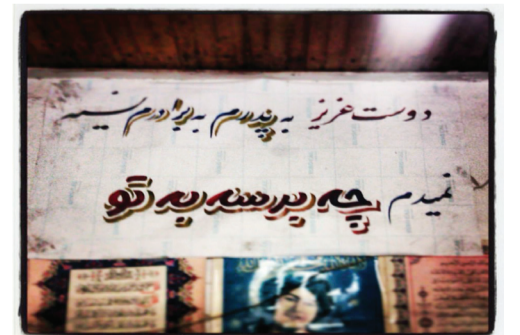 دوست عزیز به پدرم به برادرم نسیه
نمیدم چه برسه به تو